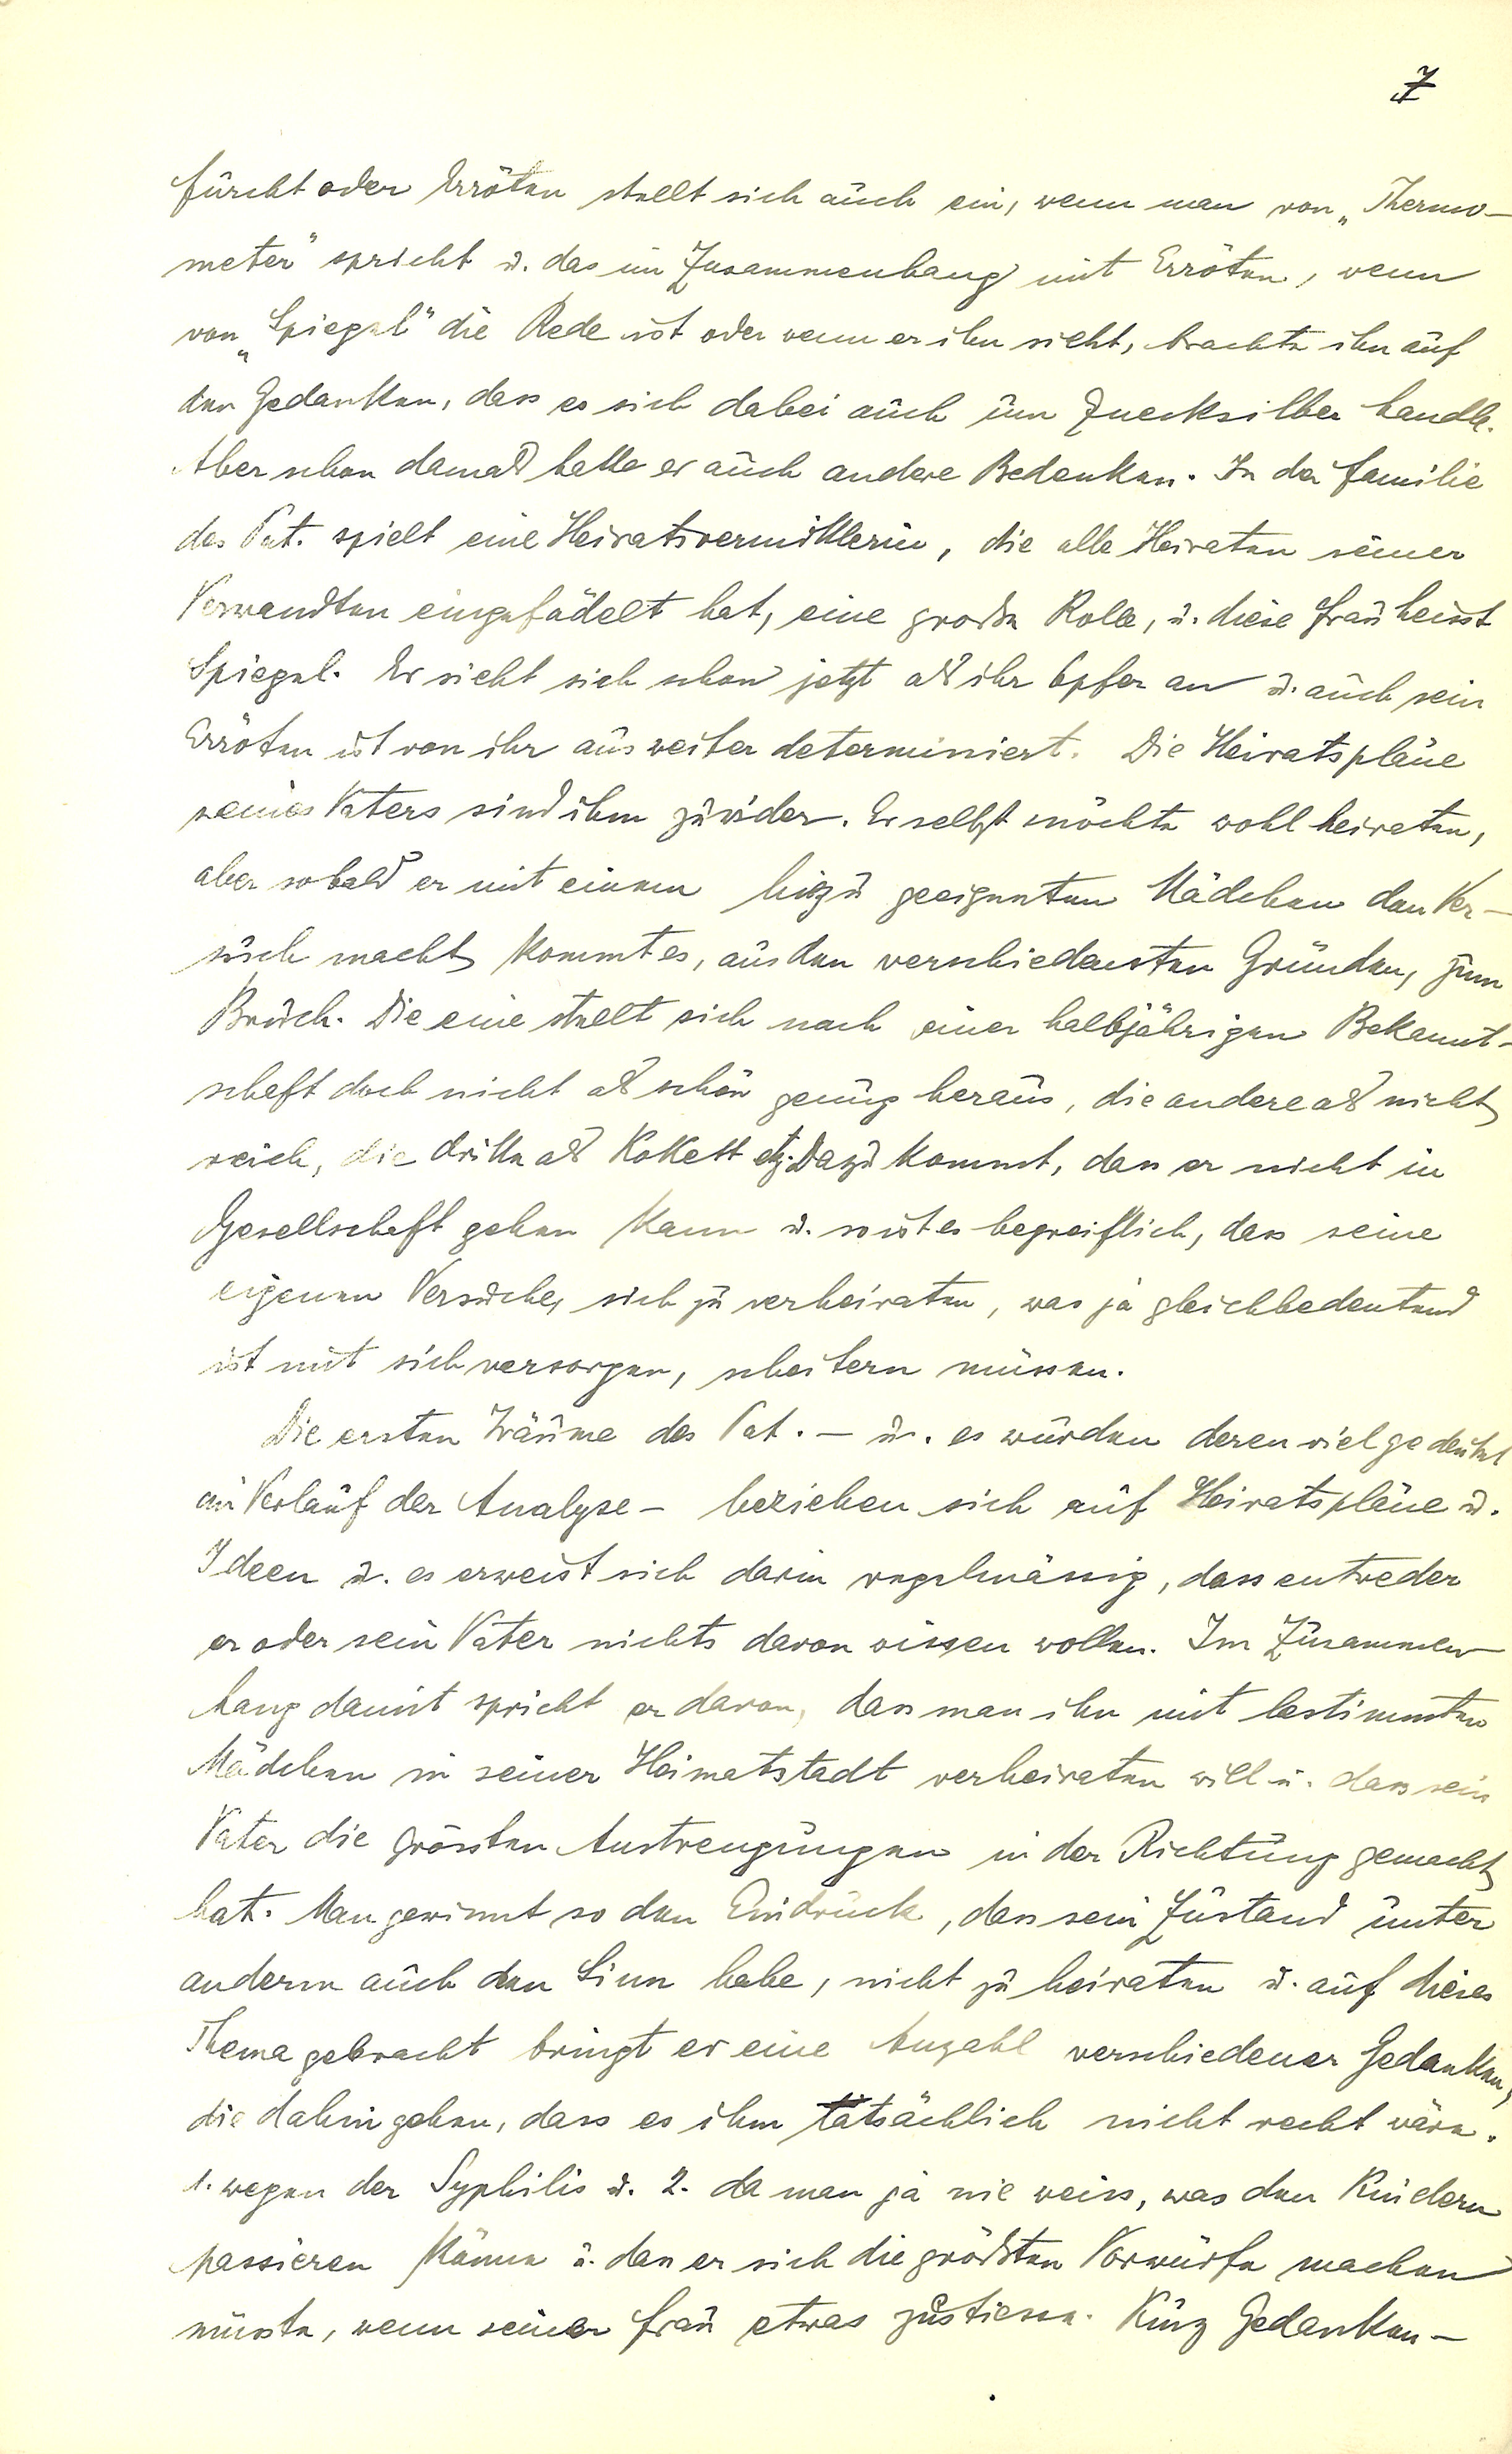 7
furcht oder Erröten stellt sich auch ein, wenn man von „Thermo-
meter" spricht u. das im Zusammenhang mit Erröten, wenn
von „Spiegel" die Rede ist oder wenn er ihn sieht, brachte ihn auf
den Gedanken, dass es sich dabei auch um Quecksilber handle.
Aber schon damals hatte er auch andere Bedenken. In der Familie
des Pat. spielt eine Heiratsvermittlerin, die alle Heiraten seiner
Verwandten eingefädelt hat, eine große Rolle, u. diese Frau heisst
Spiegel. Er sieht sich schon jetzt als ihr Opfer an u. auch sein
Erröten ist von ihr aus weiter determiniert. Die Heiratspläne
seines Vaters sind ihm zuwider. Er selbst möchte wohl heiraten,
aber sobald er mit einem hiezu geeigneten Mädchen den Ver-
such macht kommt es, aus den verschiedensten Gründen, zum
Bruch. Die eine stellt sich nach einer halbjährigen Bekannt-
schaft doch nicht als schön genug heraus, die andere als nicht
reich, die dritte als kokett etz. Dazu kommt, dass er nicht in
Gesellschaft gehen kann u. so ist es begreiflich, dass seine
eigenen Versuche, sich zu verheiraten, was ja gleichbedeutend
ist mit sich versorgen, scheitern müssen.
Die ersten Träume des Pat. – u. es wurden deren viel gedeutet
im Verlauf der Analyse – beziehen sich auf Heiratspläne u.
Ideen u. es erweist sich darin regelmässig, dass entweder
er oder sein Vater nichts davon wissen wollen. Im Zusammen
hang damit spricht er davon, dass man ihn mit bestimmten
Mädchen in seiner Heimatstadt verheiraten will u. dass sein
Vater die grössten Anstrengungen in der Richtung gemacht
hat. Man gewinnt so den Eindruck, dass sein Zustand unter
anderm auch den Sinn habe, nicht zu heiraten u. auf dieses
Thema gebracht bringt er eine Anzahl verschiedener Gedanken,
die dahin gehen, dass es ihm tatsächlich nicht recht wäre.
1. wegen der Syphilis u. 2. da man ja nie weiss, was den Kindern
passieren könne u. dass er sich die größten Vorwürfe machen
müsste, wenn seiner Frau etwas zustiesse. Kurz Gedanken-